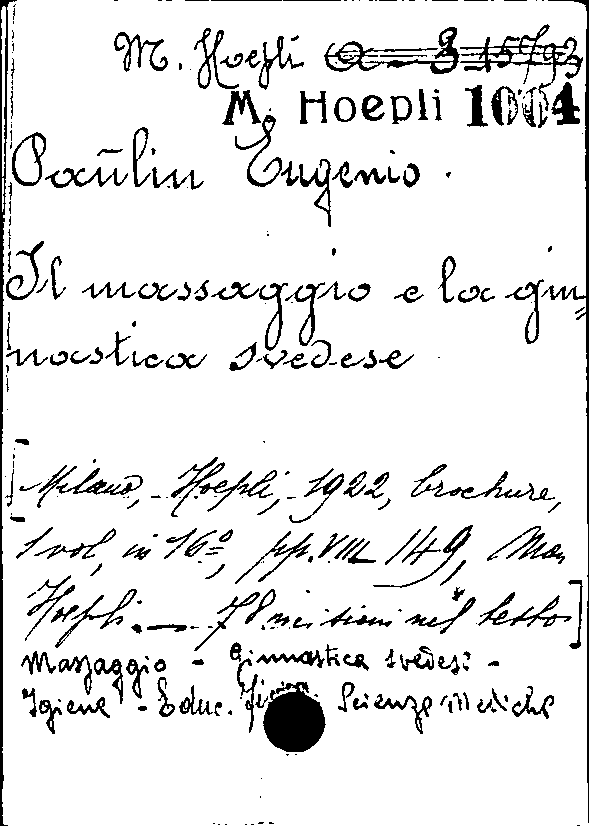 M. Hoepli a - 3 15793
M. Hoepli 1004
Paūlin Eugenio.
Il massaggio e la gin=
nastica svedese
[Milano, - Hoepli, - 1922, brochure,
1 vol, in 16º, pp. VIII 149, Man
Hoepli. — 78 incisioni nel testo]
Massaggio - Ginnastica svedese -
Igiene - Educ. fisica. Scienze Mediche